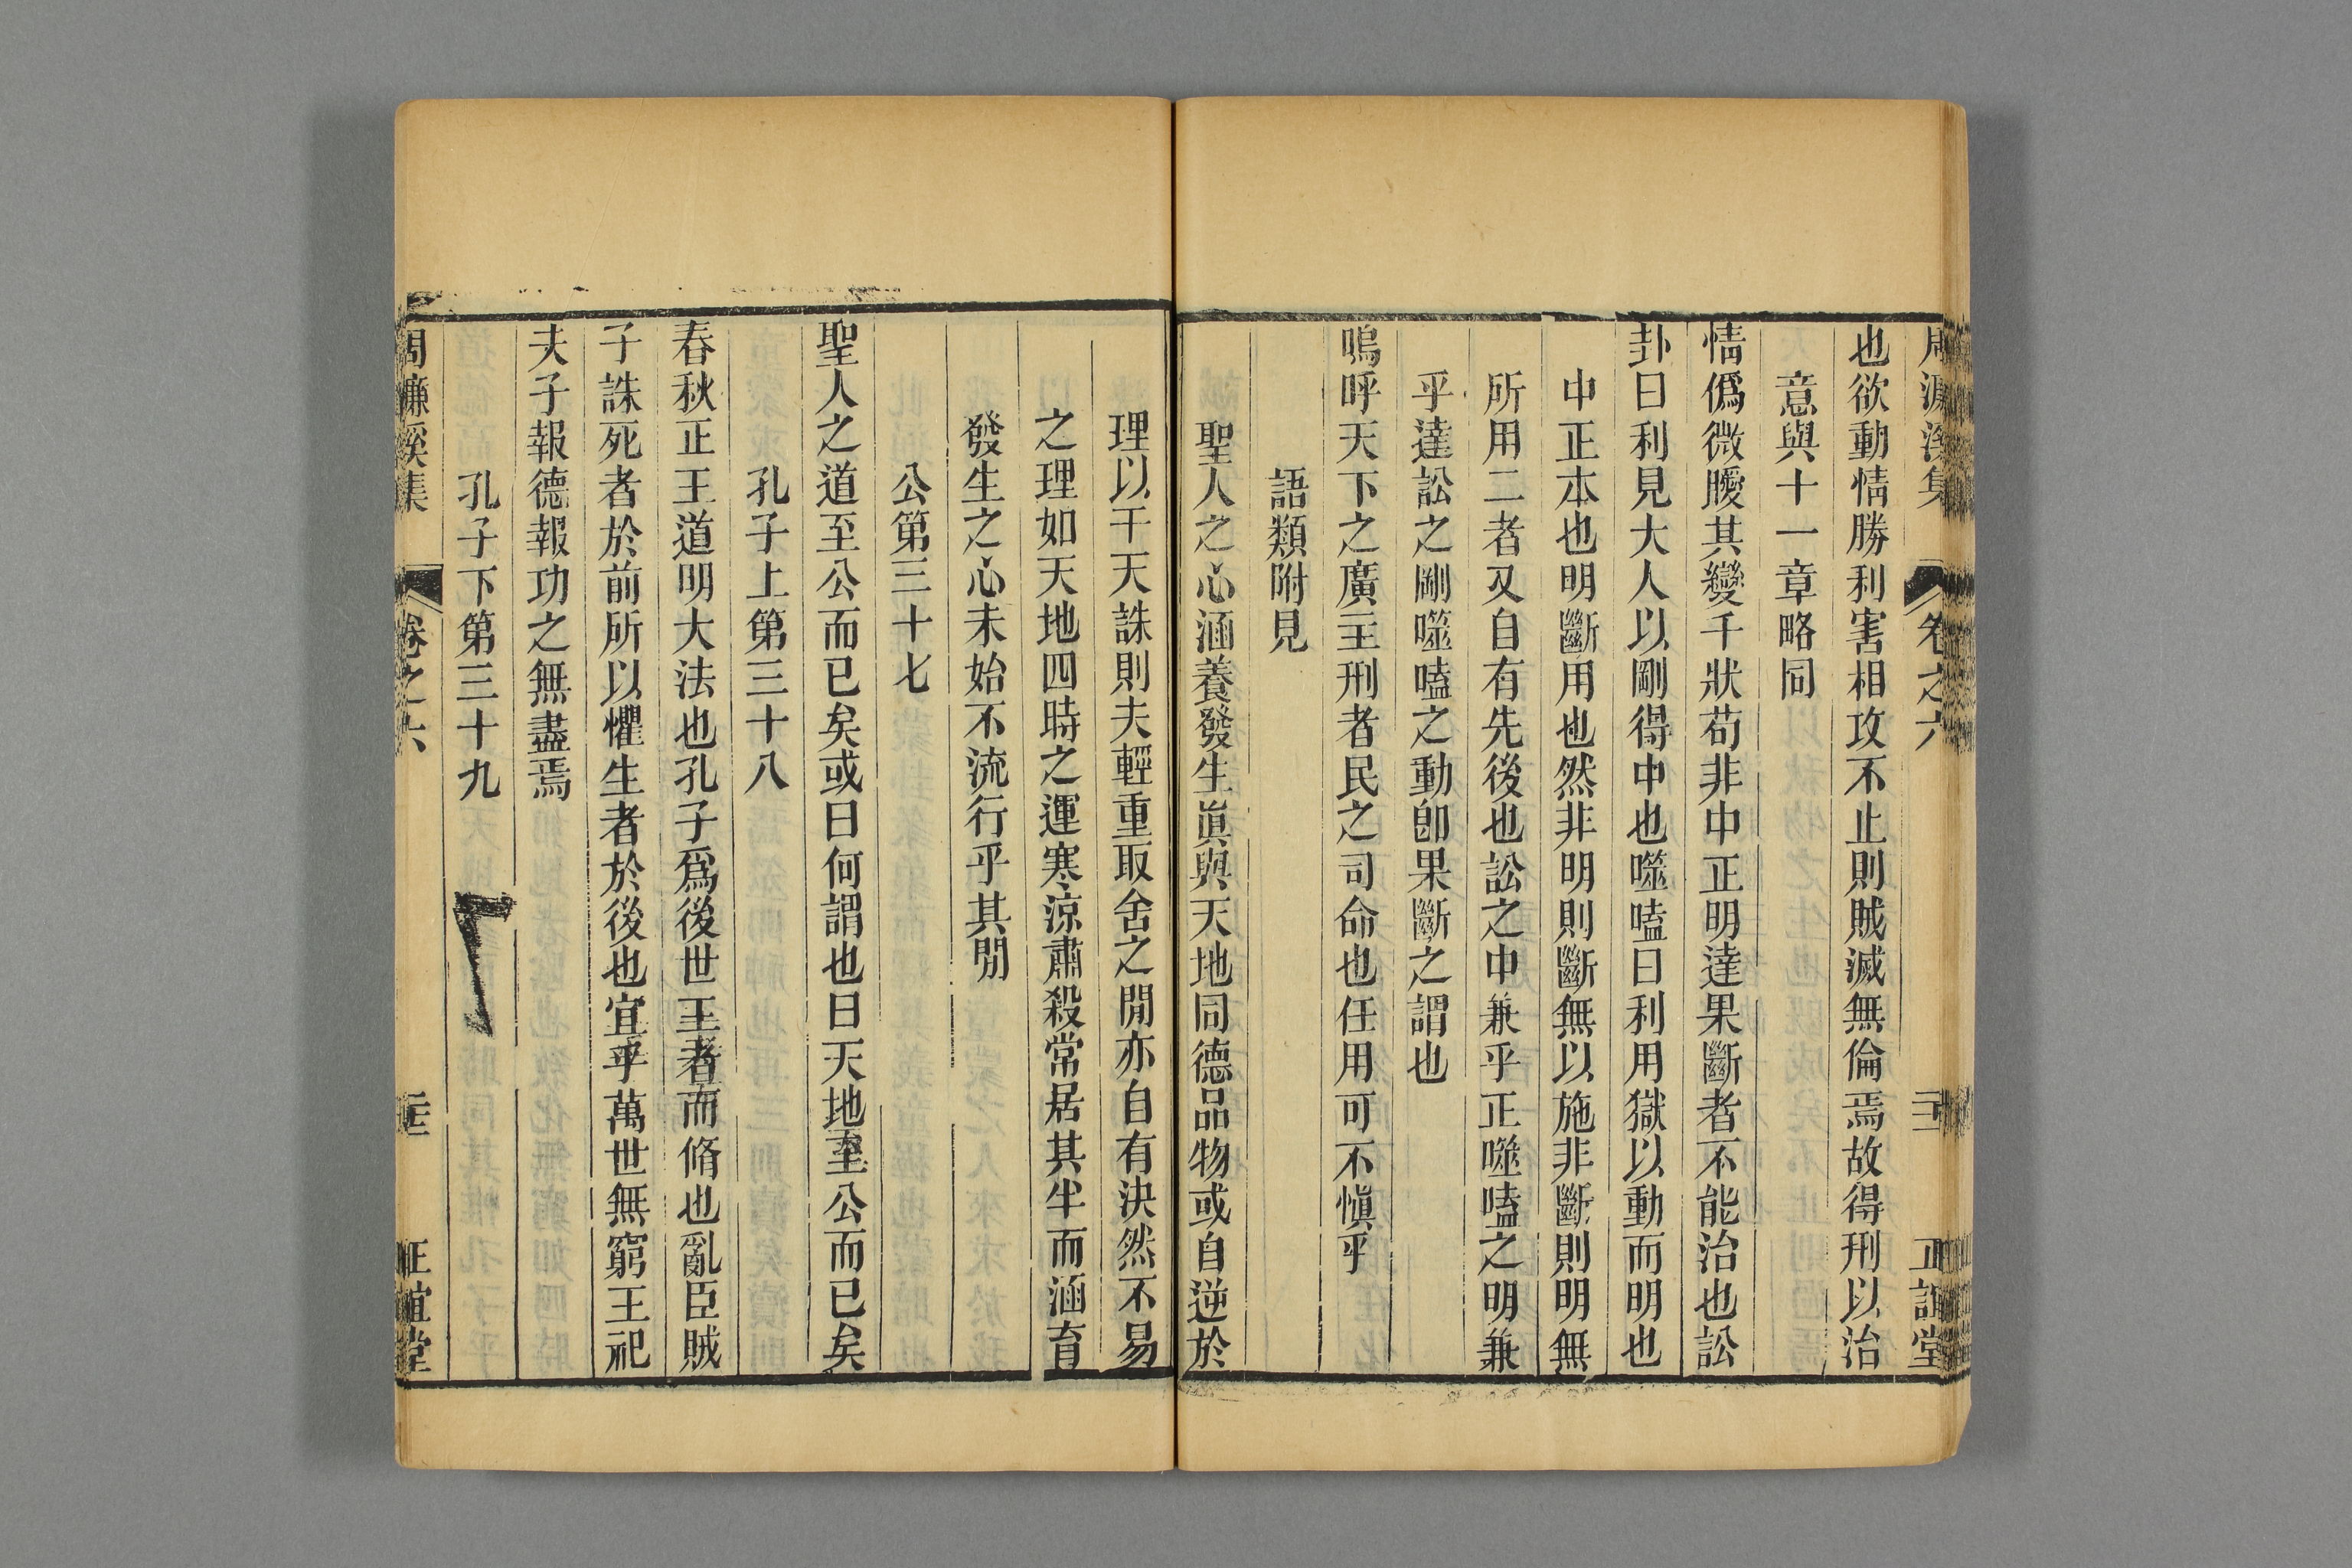 周濂溪集 卷之六 正誼堂
也欲動情勝利害相攻不止則賊滅無倫焉故得刑以治
意與十一章略同
情僞微曖其變千狀苟非中正明達果斷者不能治也訟
卦曰利見大人以剛得中也噬嗑曰利用獄以動而明也
中正本也明斷用也然非明則斷無以施非斷則明無
所用二者又自有先後也訟之中兼乎正噬嗑之明兼
乎達訟之剛噬嗑之動卽果斷之謂也
嗚呼天下之廣主刑者民之司命也任用可不愼乎
語類附見
聖人之心涵養發生眞與天地同德品物或自逆於
理以干天誅則夫輕重取舍之閒亦自有決然不易
之理如天地四時之運寒涼肅殺常居其半而涵育
發生之心未始不流行乎其閒
公第三十七
聖人之道至公而已矣或曰何謂也曰天地至公而已矣
孔子上第三十八
春秋正王道明大法也孔子爲後世王者而脩也亂臣賊
子誅死者於前所以懼生者於後也宜乎萬世無窮王祀
夫子報德報功之無盡焉
孔子下第三十九
周濂溪集 卷之六 正誼堂